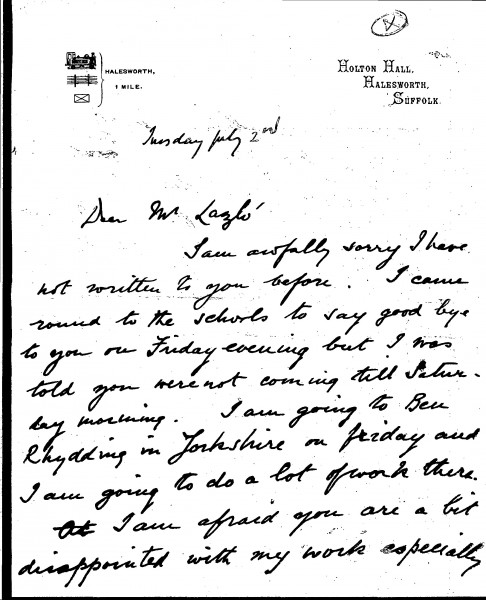 HALESWORTH,
1 MILE.
HOLTON HALL,
HALESWORTH,
SUFFOLK.
Tuesday July 2nd
Dear Mr Lazló
I am awfully sorry I have
not written to you before. I came
round to the schools to say good bye
to you on Friday evening but I was
told you were not coming till Satur-
day morning. I am going to Ben
Rhydding in Yorkshire on Friday and
I am going to do a lot of work there.
I am afraid you are a bit
disappointed with my work especially